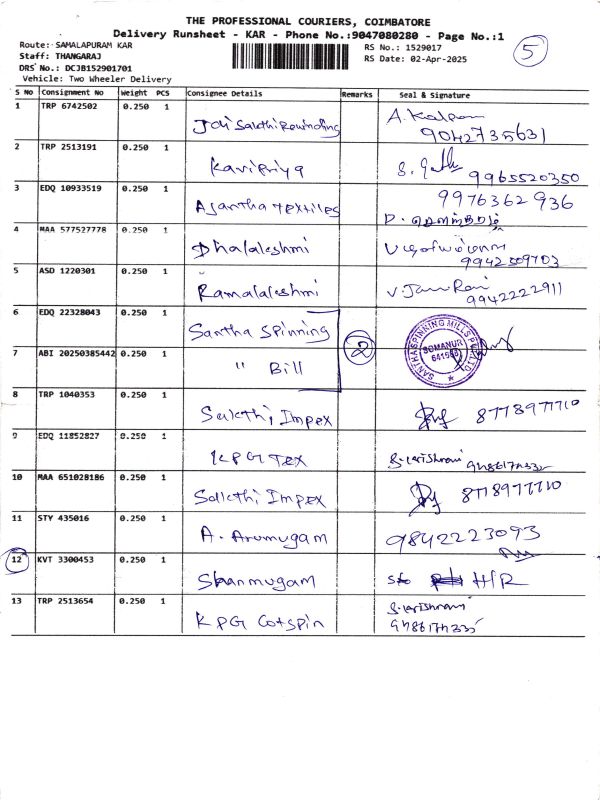 THE PROFESSIONAL COURIERS, COIMBATORE
Delivery Runsheet - KAR - Phone No.:9047080280 - Page No.:1
Route: SAMALAPURAM KAR
RS No.: 1529017
5
Staff: THANGARAJ
RS Date: 02-Apr-2025
DRS No.: DCJB152901701
Vehicle: Two Wheeler Delivery
S NO Consignment No Weight PCS Consignee Details Remarks Seal & Signature
1 TRP 6742502 0.250 1 Jai Sakthi Rewinding A. Kalpana
9042735631
2 TRP 2513191 0.250 1 Kavipriya 9965520350
3 EDQ 10933519 0.250 1 Ajantha textiles 9976362936
4 MAA 577527778 0.250 1 Dhalaleshmi
9942509703
5 ASD 1220301 0.250 1 Ramalaleshmi V. Jam Rani
9942222911
6 EDQ 22328043 0.250 1 Santha Spinning
SANTHA SPINNING MILLS PVT LTD
SOMANUR
2
7 ABI 20250385442 0.250 1 " Bill
8 TRP 1040353 0.250 1 Sakthi Impex 8778977710
9 EDQ 11852827 0.250 1 KPG Tex
10 MAA 651028186 0.250 1 Sakthi Impex 8778977710
11 STY 435016 0.250 1 A. Arumugam 9842223093
12 KVT 3300453 0.250 1 Shanmugam S/o H/R
13 TRP 2513654 0.250 1 KPG Cotspin